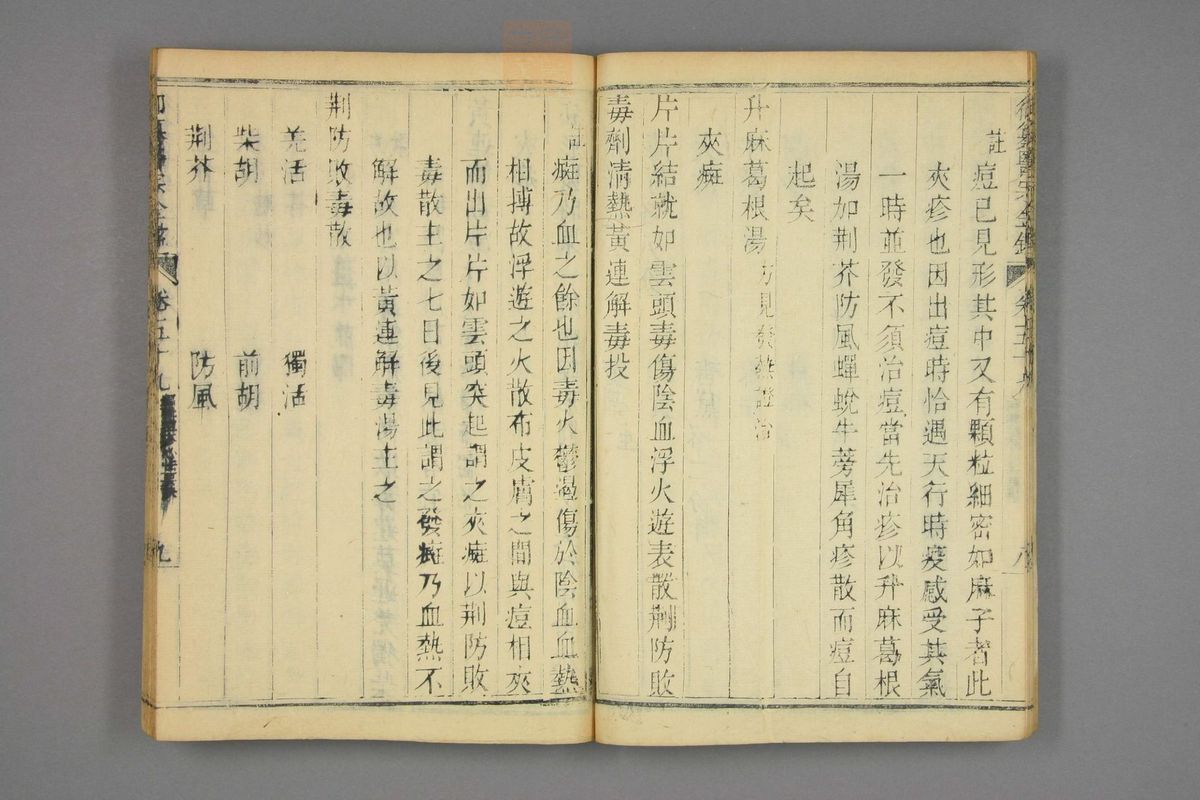 御纂醫宗金鑑 卷五十九 八
註痘已見形其中又有顆粒細密如麻子者此
夾疹也因出痘時恰遇天行時疫感受其氣
一時並發不須治痘當先治疹以升麻葛根
湯加荆芥防風蟬蛻牛蒡犀角疹散而痘自
起矣
升麻葛根湯 方見發熱證治
夾癍
片片結就如雲頭毒傷陰血浮火遊表散荆防敗
毒劑清熱黃連解毒投
註癍乃血之餘也因毒火鬱遏傷於陰血血熱
相搏故浮遊之火散布皮膚之間與痘相夾
而出片片如雲頭突起謂之夾癍以荆防敗
毒散主之七日後見此謂之發癍乃血熱不
解故也以黃連解毒湯主之
荆防敗毒散
羌活 獨活
柴胡 前胡
荆芥 防風
卷五十九 九